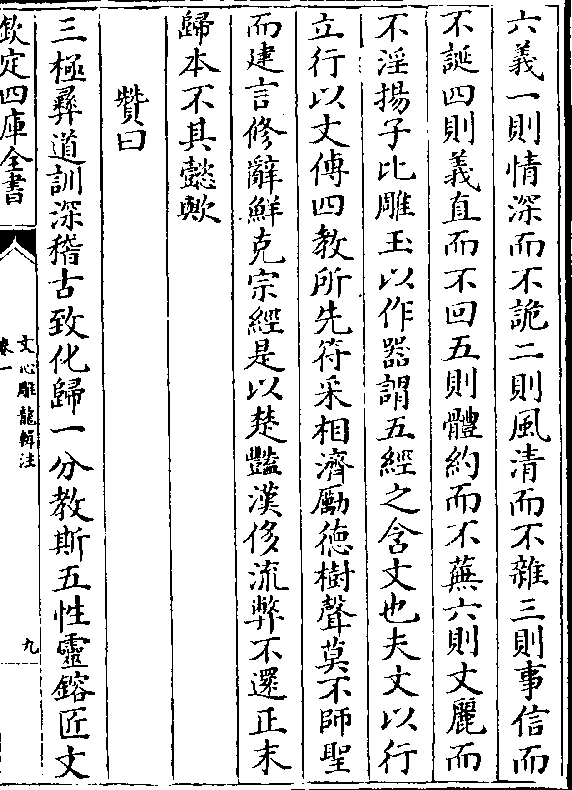 六義一則情深而不詭二則風清而不雜三則事信而
不誕四則義直而不回五則體約而不蕪六則文麗而
不淫揚子比雕玉以作器謂五經之含文也夫文以行
立行以文傳四教所先符采相濟勵德樹聲莫不師聖
而建言修辭鮮克宗經是以楚豔漢侈流弊不還正末
歸本不其懿歟
贊曰
三極彝道訓深稽古致化歸一分教斯五性靈鎔匠文
欽定四庫全書
文心雕龍輯注
卷一
九